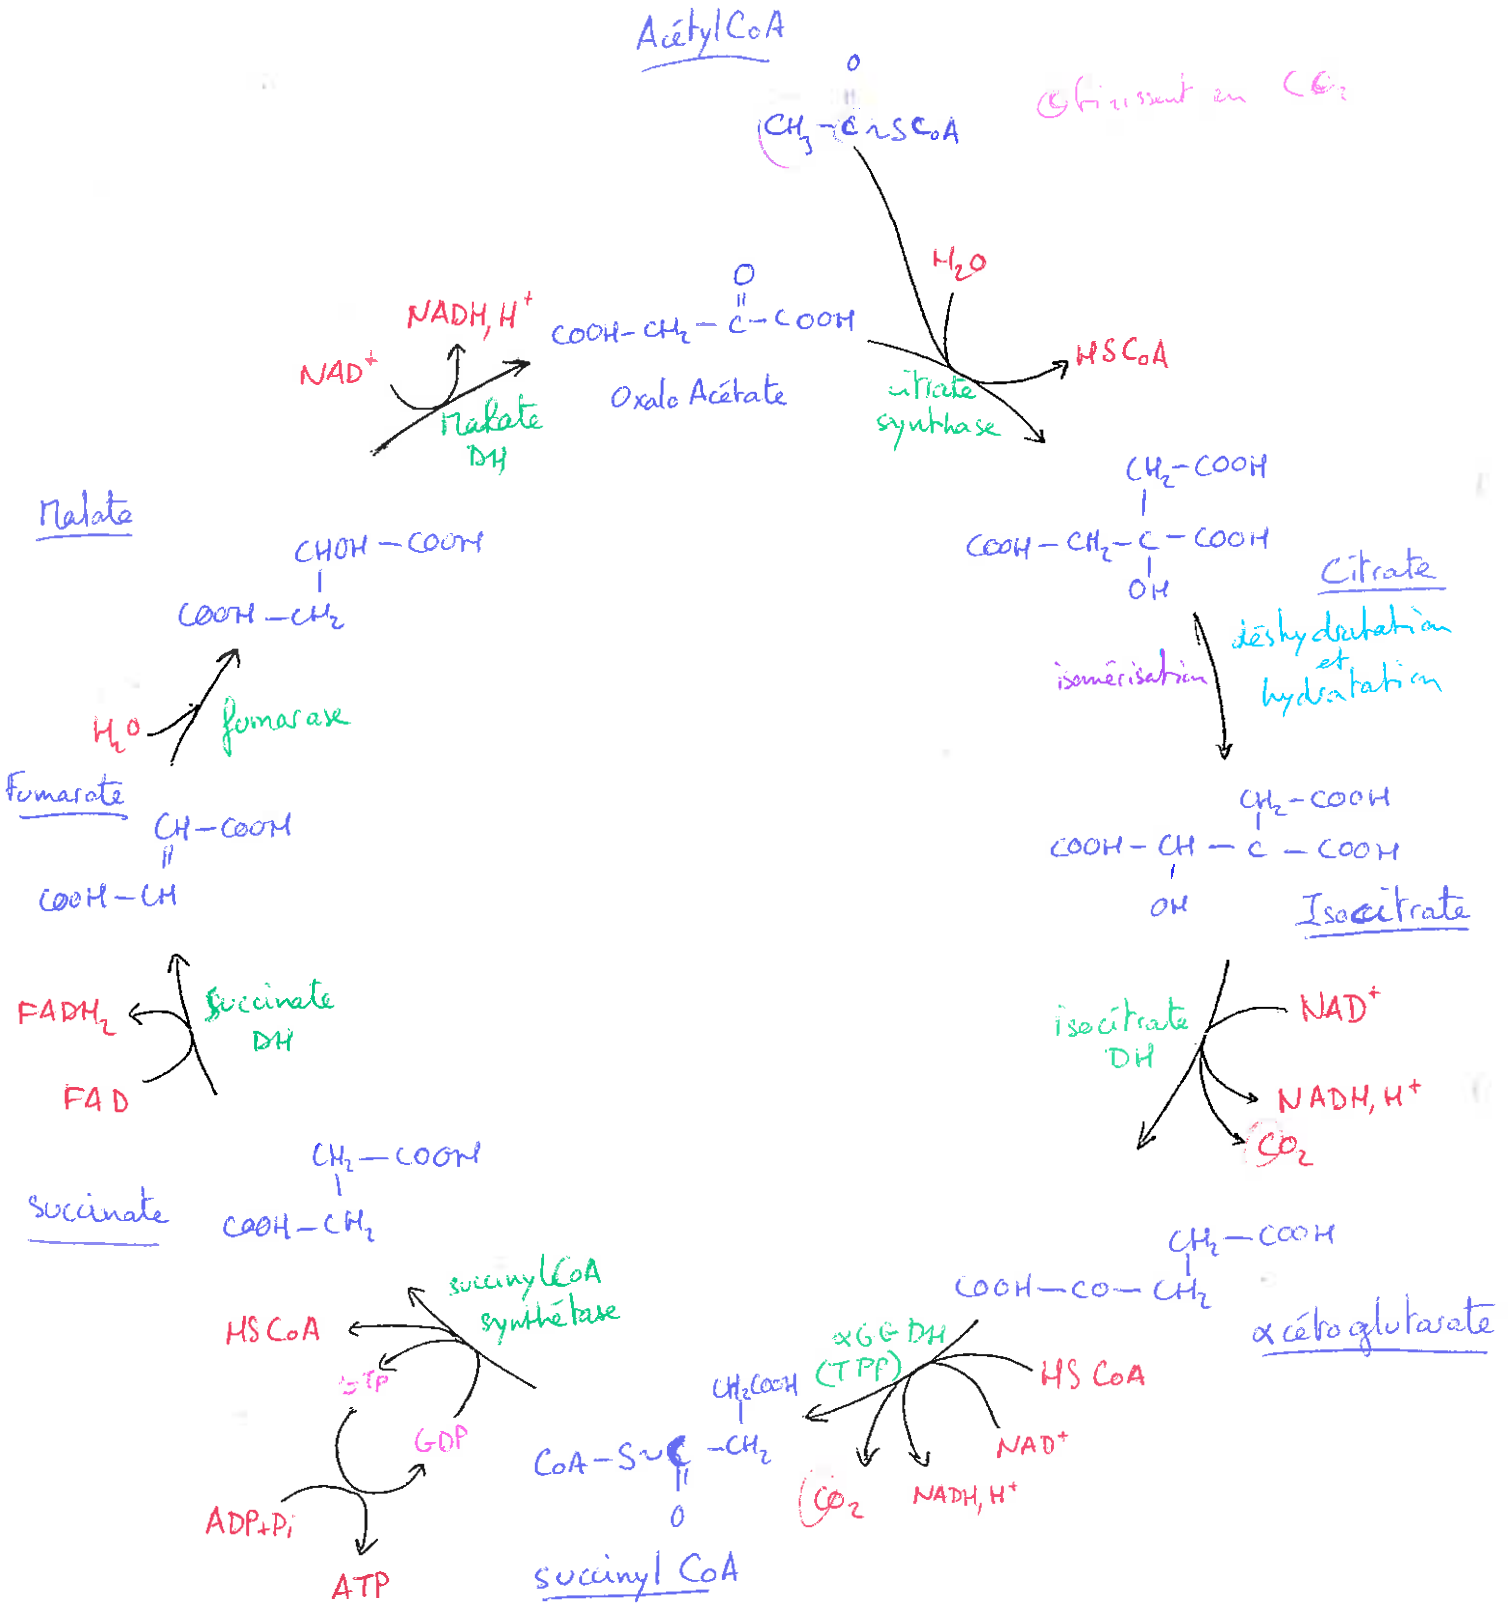 AcétylCoA
O
CH3-C~SCoA
finissent en CO2
H2O
HSCoA
citrate
synthase
NAD+
NADH, H+
Malate
DH
O
COOH-CH2-C-COOH
Oxalo Acétate
CH2-COOH
COOH-CH2-C-COOH
OH
Citrate
isomérisation
déshydratation
et
hydratation
CH2-COOH
COOH-CH-C-COOH
OH
Isocitrate
isocitrate
DH
NAD+
NADH, H+
CO2
CH2-COOH
COOH-CO-CH2
α cétoglutarate
αGG DH
(TPP)
HS CoA
NAD+
NADH, H+
CO2
CH2COOH
CoA-S~C-CH2
O
succinyl CoA
succinylCoA
synthétase
HSCoA
GTP
GDP
ADP+Pi
ATP
CH2-COOH
COOH-CH2
succinate
succinate
DH
FADH2
FAD
Fumarate
CH-COOH
COOH-CH
H2O
fumarase
Malate
CHOH-COOH
COOH-CH2